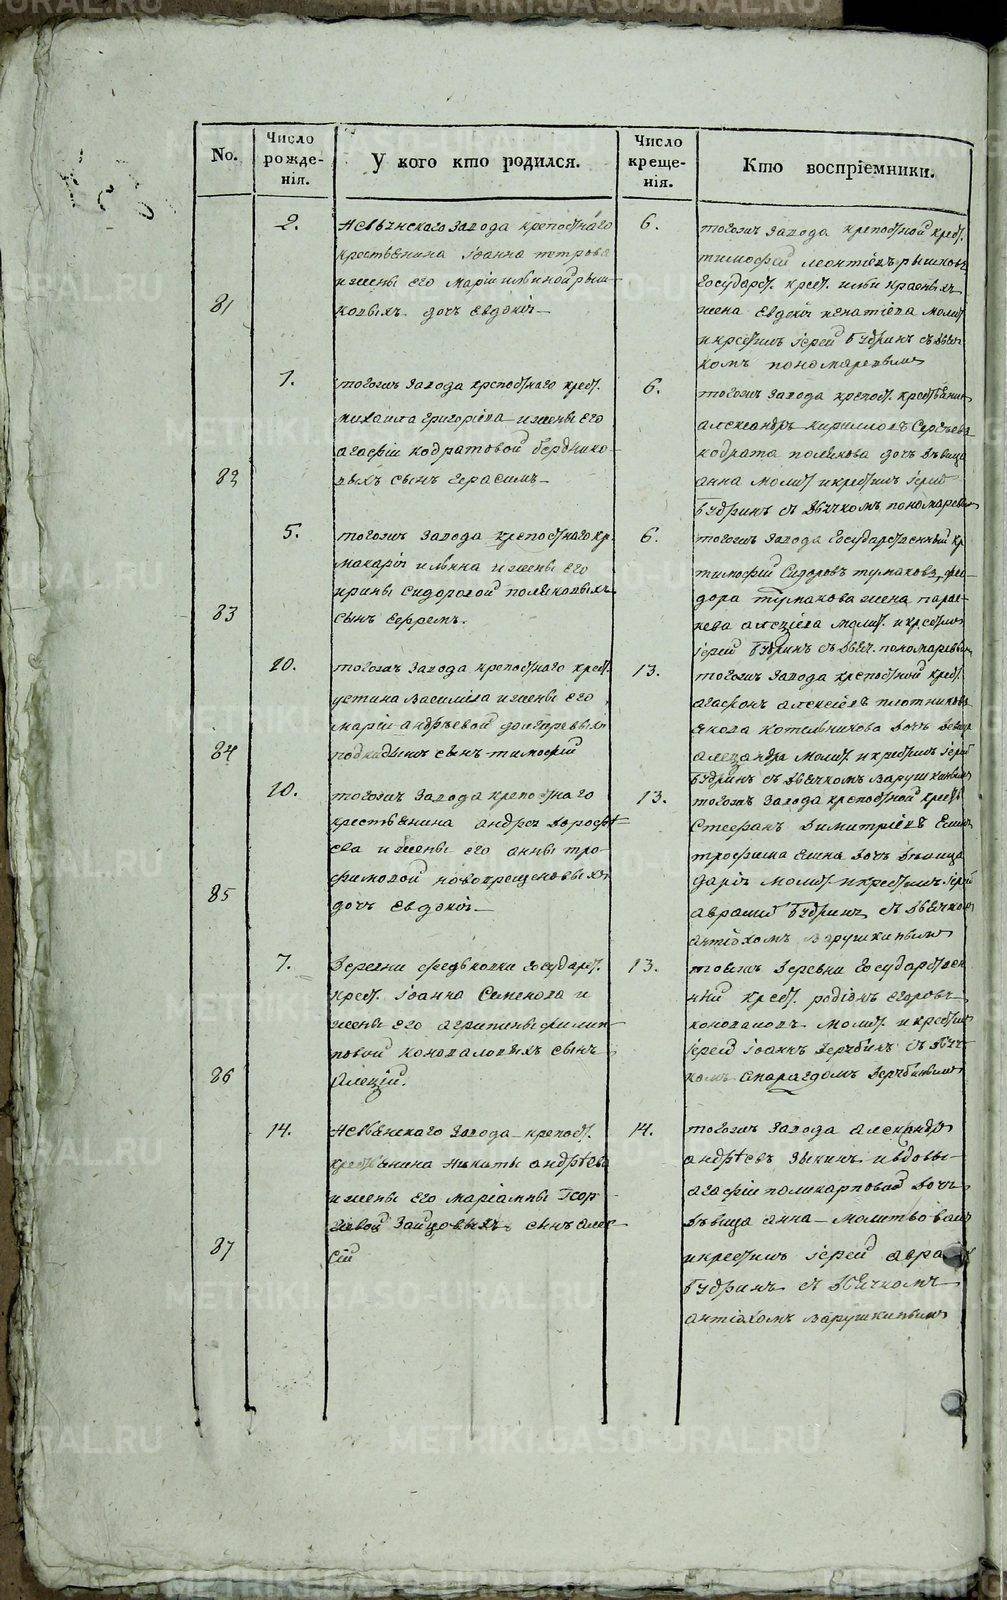 No.
Число рожденія.
У кого кто родился.
Число крещенія.
Кто воспріемники.
81
2.
Невьянскаго Завода крепостнаго
крестьянина Іоанна Петрова
и жены его Маріи Ильиной рыш-
ковыхъ дочь Евдокія
6.
тогожъ завода крепостной крест.
тимофей леонтіевъ рышковъ
Государст. крест. ильи красныхъ
жена Евдокія игнатіева молит.
и крестилъ іерей Будринъ съ дьяч-
комъ пономаревымъ
82
1.
тогожъ завода крепостнаго крест.
михаила григоріева и жены его
агафіи кодратовой берднико-
выхъ сынъ Герасимъ
6.
тогожъ завода крепост. крестьянин
александръ кирилловъ Сергѣевъ
кодрата полякова дочь дѣвица
анна молит. и крестилъ іерей
Будринъ съ дьячкомъ пономаревым
83
5.
тогожъ завода крепостнаго кр.
макарія ильина и жены его
ирины Сидоровой поляковыхъ
сынъ Ефремъ.
6.
тогожъ завода Государственный кр
тимофей Сидоровъ тумаковъ, фео-
дора тумакова жена парас-
кева алексіева молит. и крестилъ
іерей Будринъ съ дьяч. пономаревым
84
10.
тогожъ завода крепостнаго крест.
устина Василіева и жены его
маріи андрѣевой
подкидышъ сынъ тимофей
13.
тогожъ завода крепостной крест.
агафонъ алексіевъ плотников
якова котельникова дочь девица
александра молит. и крестилъ іерей
Будринъ съ дьячкомъ Варушкинымъ
85
10.
тогожъ завода крепостнаго
крестьянина андрея дорофѣ-
ева и жены его анны тро-
фимовой новокрещеновыхъ
дочь Евдокія
13.
тогожъ завода крепостной крест
Стефанъ димитріевъ Елин
трофима Елина дочь дѣвица
дарія молит. и крестилъ іерей
аврамій Будринъ съ дьячком
антіохомъ Варушкинымъ
86
7.
деревни федьковки государст.
крест. Іоанна Семенова и
жены его агрипины филип-
повой коноваловыхъ сынъ
Алексій.
13.
тоежъ деревни Государствен
ный крест. родіонъ егоровъ
коноваловъ молит. и крестил
іерей Іоаннъ дерябинъ съ дьяч-
комъ Смарагдомъ дерябинымъ
87
14.
Невьянскаго Завода крепост.
крестьянина никиты андрѣева
и жены его Маріамны Геор-
гіевой Зайцовыхъ сынъ алек-
сій
14.
тогожъ завода александръ
андрѣевъ Зыкинъ и вдовы
агафіи поликарповой дочь
дѣвица анна молитвовалъ
и крестилъ іерей аврамій
Будринъ съ дьячкомъ
антіохомъ Варушкинымъ
METRIKI.GASO-URAL.RU